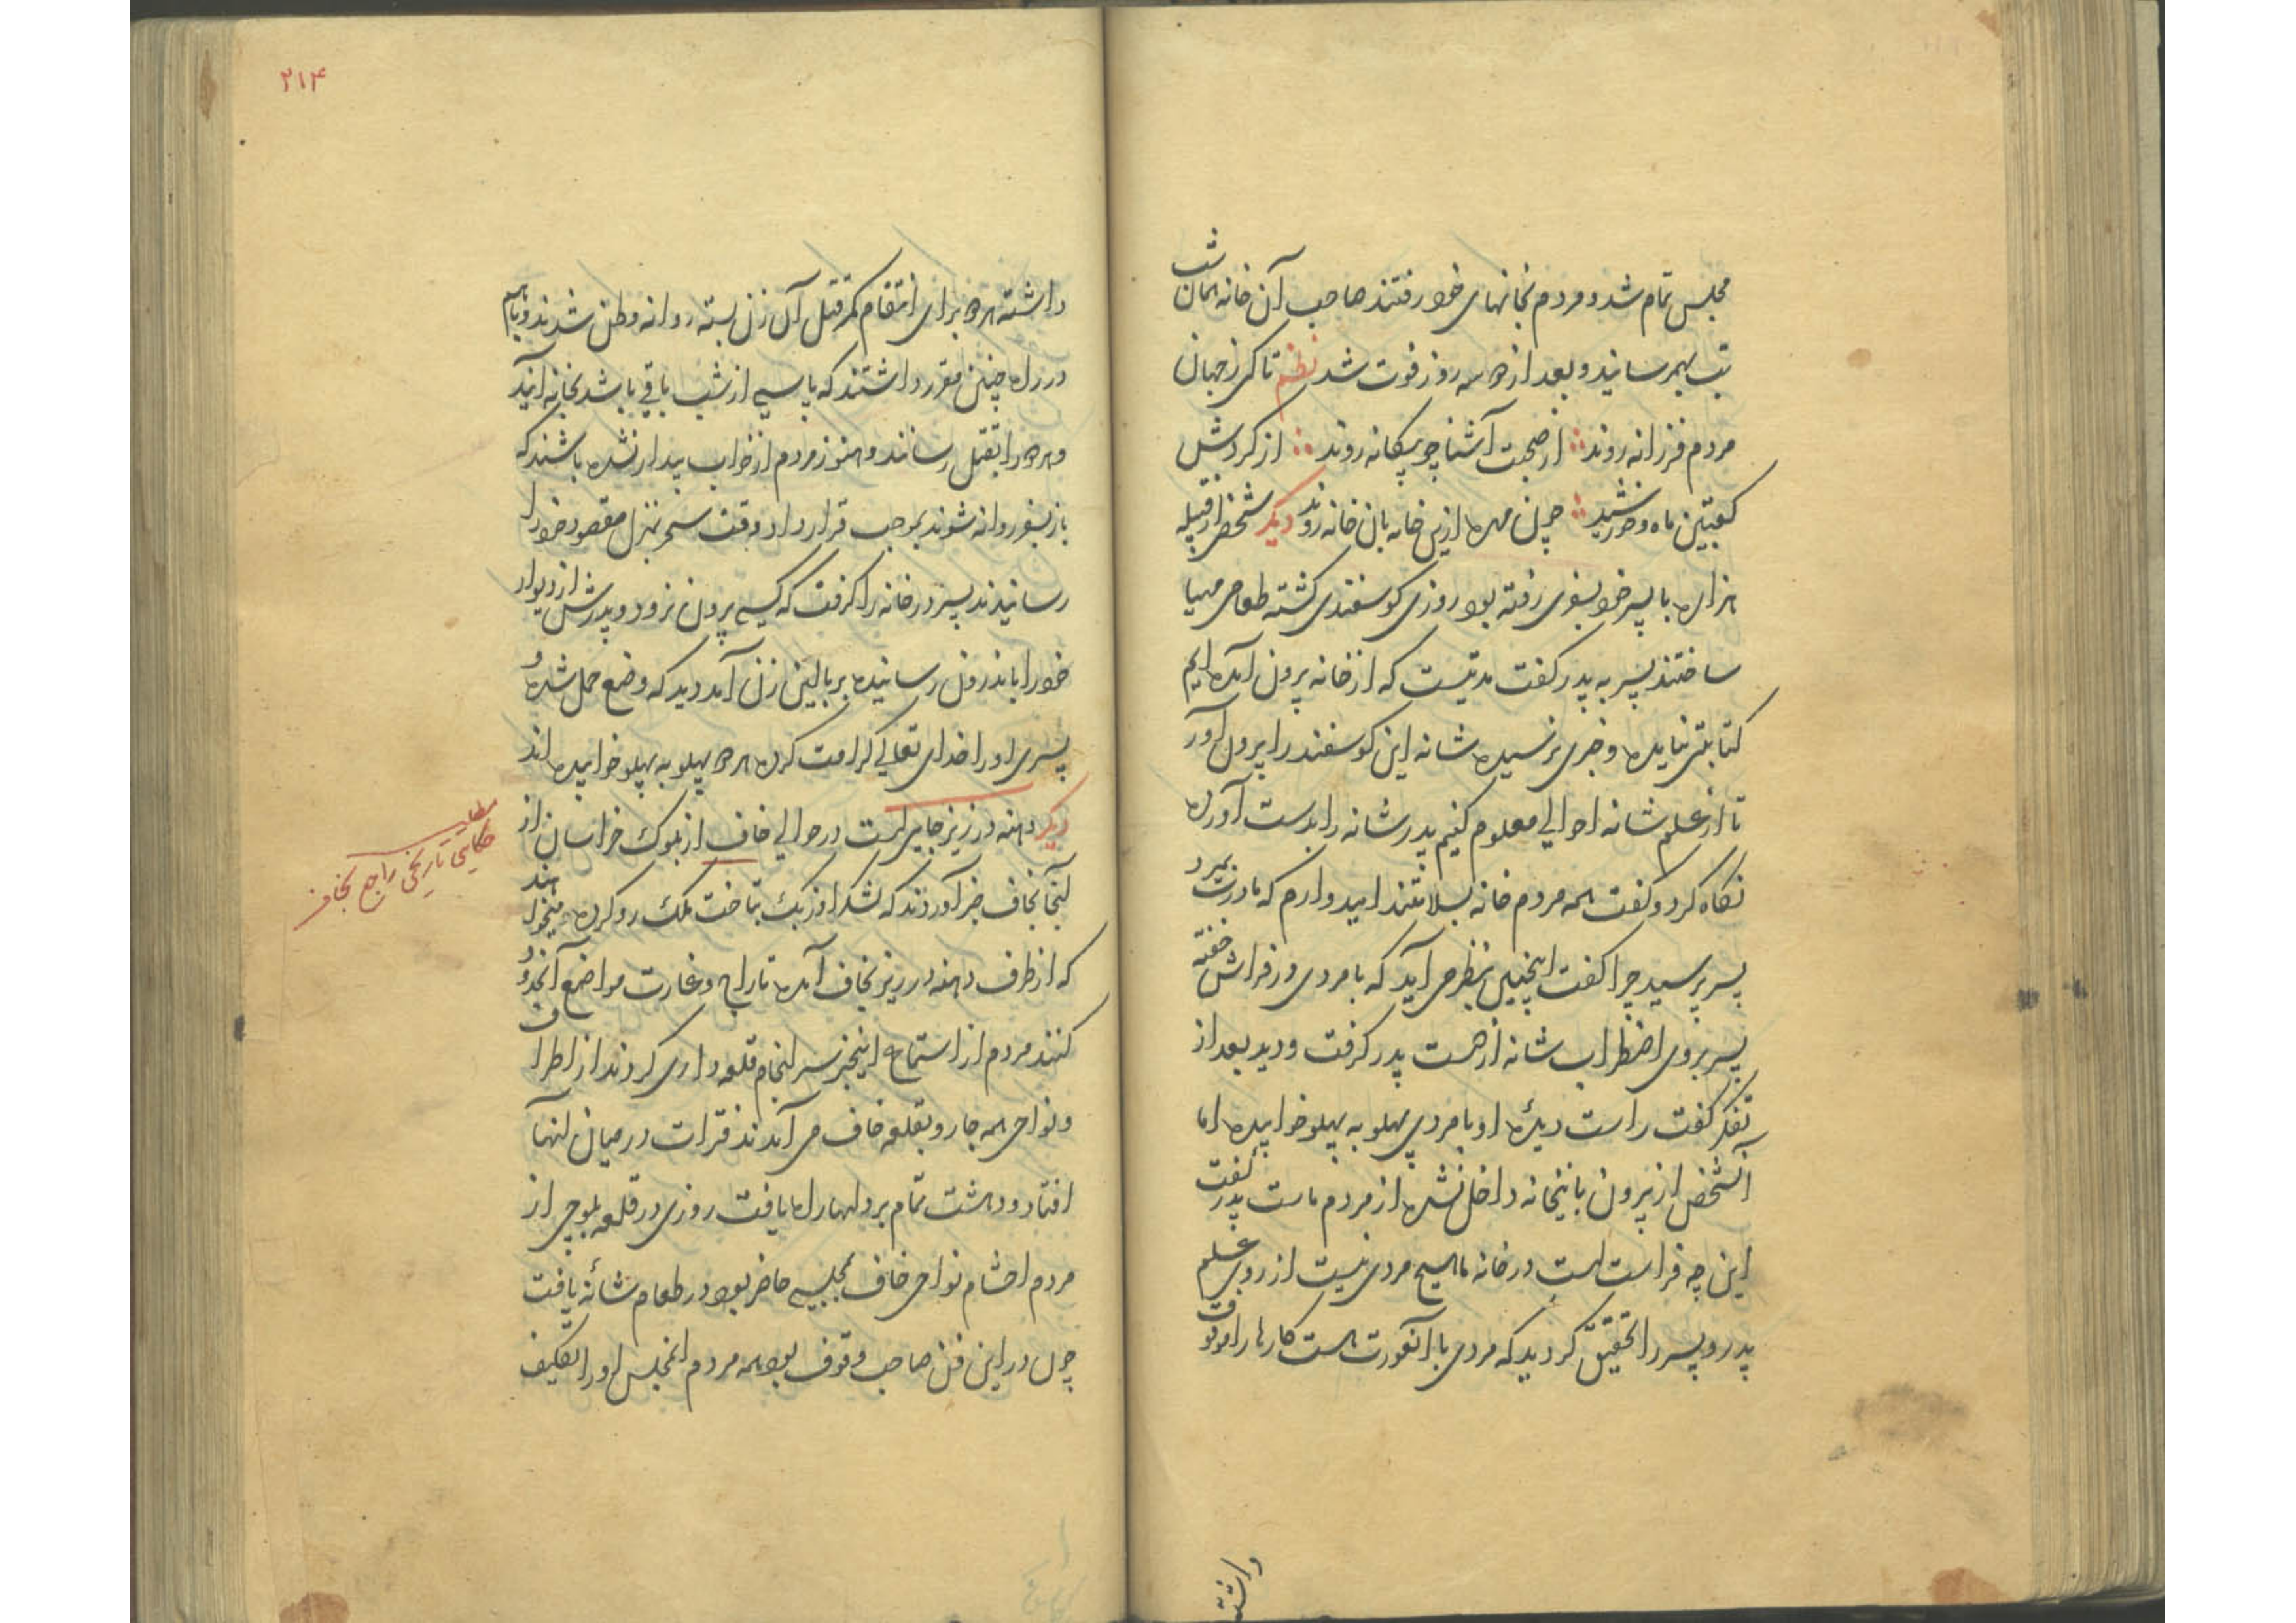 مجلس تمام شد و مردم بخانهای خود رفتند صاحب آن خانه همان شب
تب بهمرسانید و بعد از دو سه روز فوت شد نظم تا کی ز جهان
مردم فرزانه روند از صحبت آشنا چو بیگانه روند از کردش
کعبتین ماه و خورشید چون مهره ازین خانه بان خانه روند دیکر شخصی از قبیله
هزاره با پسر خود بسفری رفته بود روزی کوسفندی کشته طعامی مهیا
ساختند پسر به پدر کفت مدتیست که از خانه بیرون آمده ایم
کتابتی نیامده و خبری نرسیده شانه این کوسفند را بیرون آور
تا از علم شانه احوالی معلوم کنیم پدر شانه را بدست آورده
نکاه کرد و کفت همه مردم خانه بسلامتند امیدوارم که مادرت بمیرد
پسر پرسید چرا کفت اینچنین بنظر می آید که با مردی در فراش خفته
پسر بروی اضطراب شانه از دست پدر کرفت و دید بعد از
تفکر کفت راست دیدهٔ او با مردی پهلو به پهلو خوابیده اما
آنشخص از بیرون باینخانه داخل نشده از مردم ماست پدر کفت
این چه فراست است در خانه ما هیچ مردی نیست از روی علم
پدر و پسر را تحقیق کردید که مردی با آنعورت هست کارها را موقوف
داشته
۲۱۴
داشته هر دو برای انتقام کمر قتل آن زن بسته روانه وطن شدند و باهم
در راه چنین مقرر داشتند که پاسی از شب باقی باشد بخانه آیند
و هر دو را بقتل رسانند و هنوز مردم از خواب بیدار نشده باشند که
باز بسفر روانه شوند بموجب قرارداد وقت سحر بمنزل مقصود خود را
رسانیدند پسر در خانه را کرفت که کسی بیرون نرود و پدرش از دیوار
خود را باندرون رسانیده بر بالین زن آمد دید که وضع حمل شده و
پسری او را خدای تعالی کرامت کرده هر دو پهلو به پهلو خوابیده اند
دیکر دهنه در زیر جایی است در حوالی خاف از بلوک خراسان از
آنجا بخاف خبر آوردند که لشکر اوزبک بتاخت ملک رو کرده میخواهند
که از طرف دهنه در زیر بخاف آمده تاراج و غارت مواضع آنحدود
کنند مردم از استماع اینخبر سرانجام قلعه داری کردند از اطراف
و نواحی همه جا رو بقلعه خاف می آمدند فترات در میان آنها
افتاد و دهشت تمام بر دلها راه یافت روزی در قلعه بلوچی از
مردم احشام نواحی خاف بمجلسی حاضر بود در طعام شانهٔ یافت
چون در این فن صاحب وقوف بود همه مردم آنمجلس او را تکلیف
مطلب
حکایتی تاریخی راجع بخاف